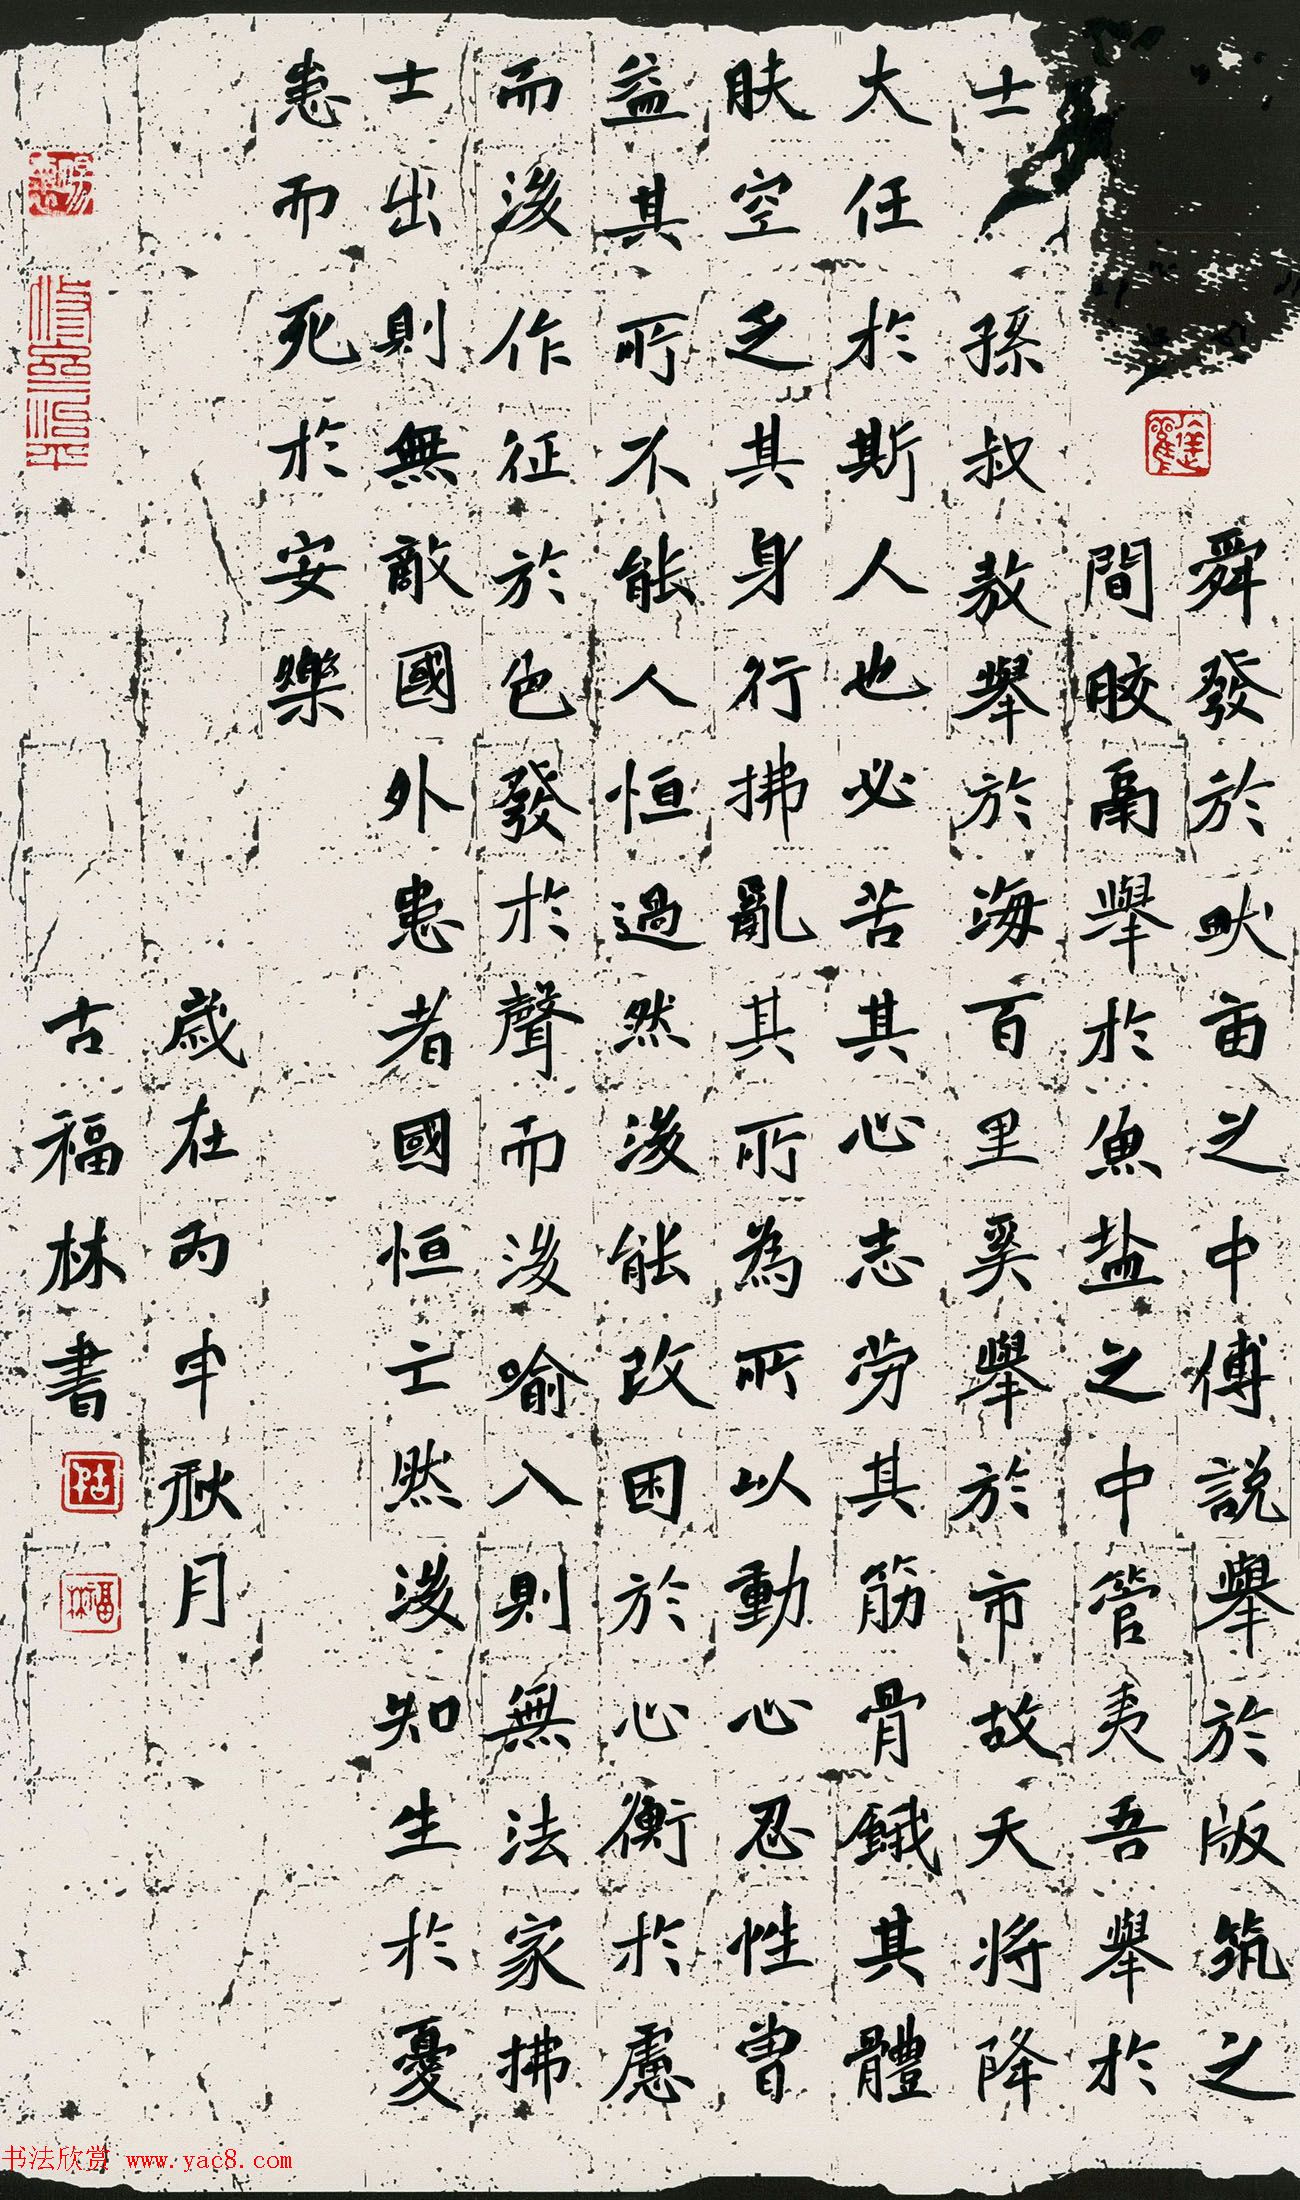 舜發於畎亩之中傅説舉於版筑之
間膠鬲舉於魚盐之中管夷吾舉於
士孫叔敖舉於海百里奚舉於市故天将降
大任於斯人也必苦其心志劳其筋骨餓其體
肤空乏其身行拂亂其所為所以動心忍性曾
益其所不能人恒過然後能改困於心衡於慮
而後作征於色發於聲而後喻入則無法家拂
士出則無敵國外患者國恒亡然後知生於憂
患而死於安樂
歲在丙申秋月
古福林書
书法欣赏 www.yac8.com